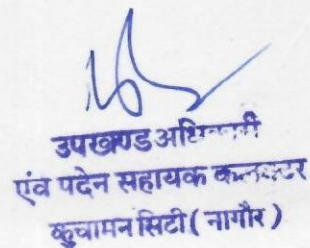 उपखण्ड अधिकारी
एंव पदेन सहायक कलक्टर
कुचामन सिटी ( नागौर )